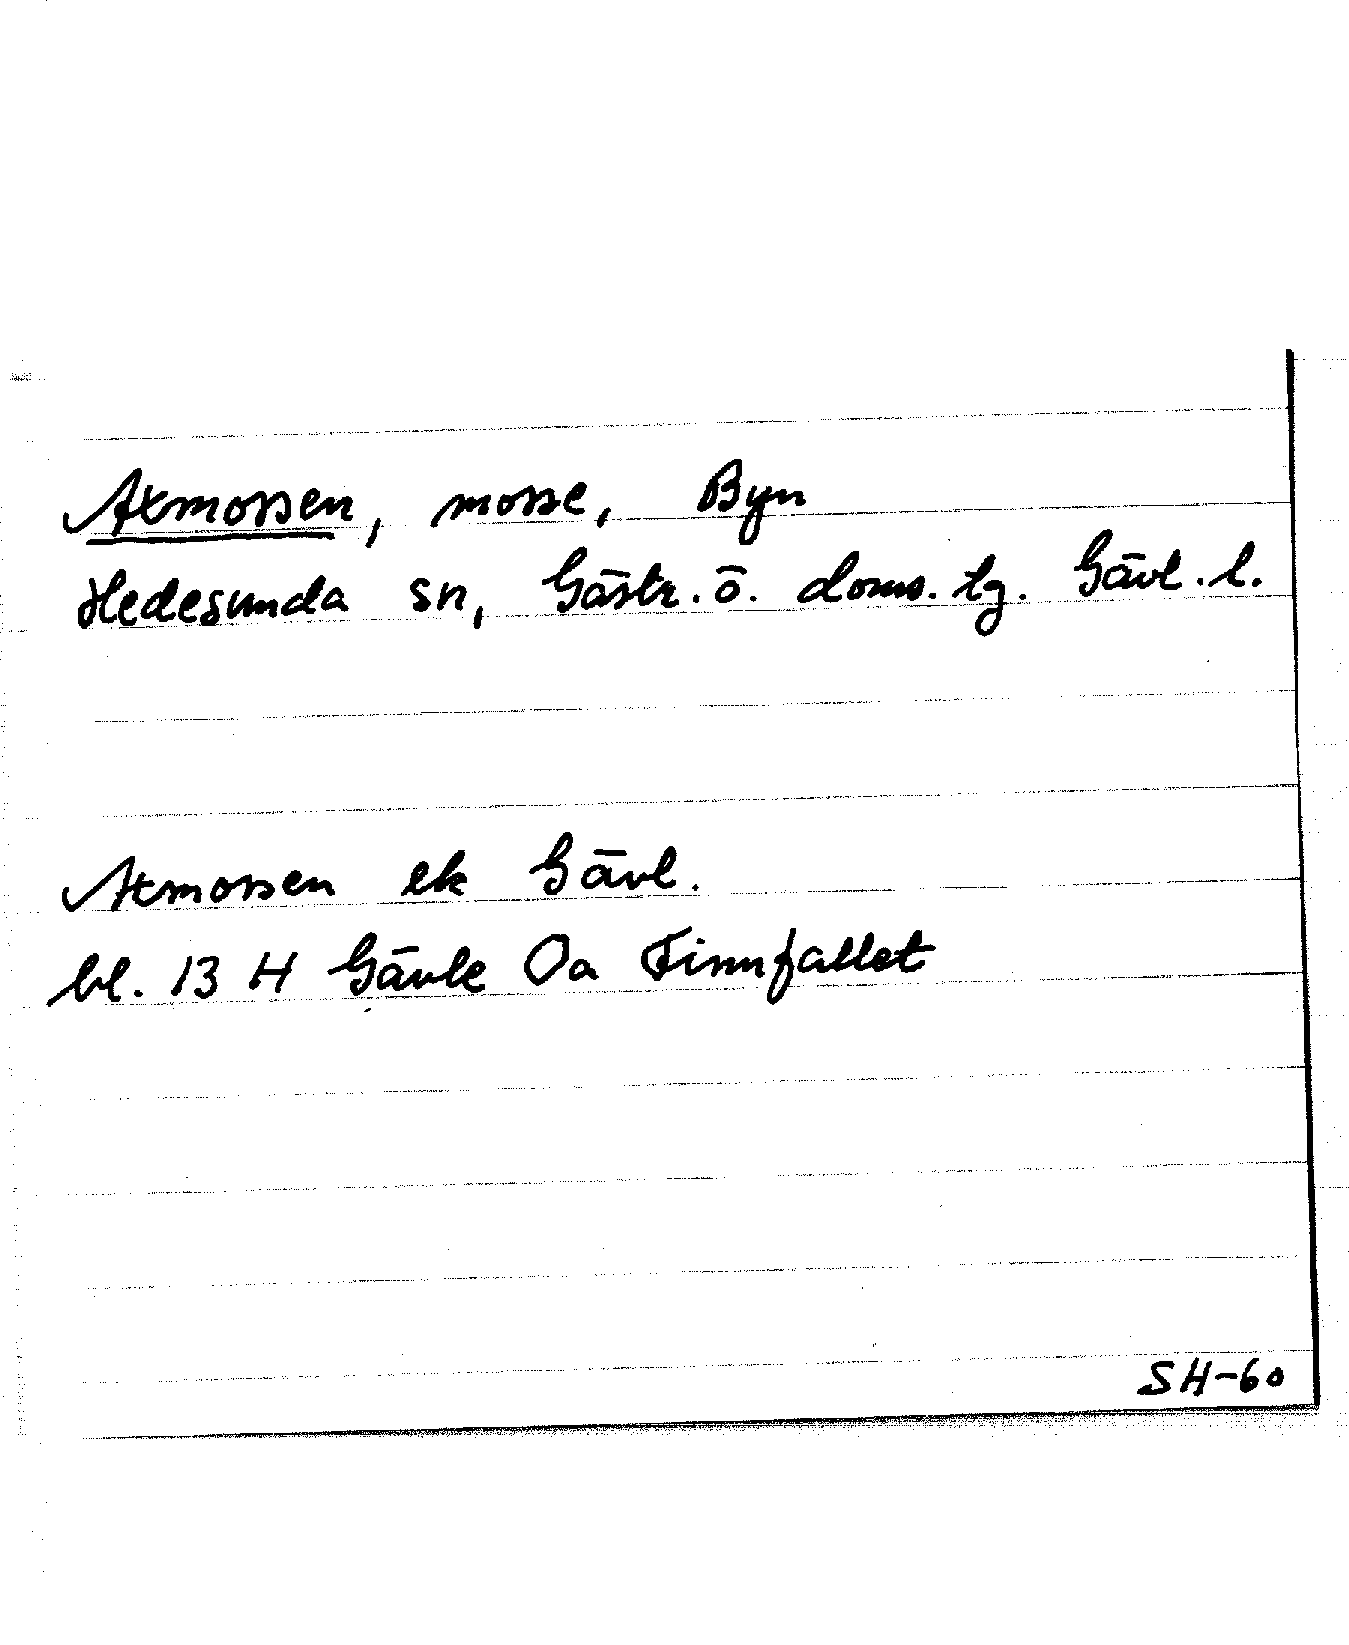 Axmossen, mosse, Byn
Hedesunda sn, Gästr. ö. doms. tg. Gävl. l.
Axmossen ek Gävl.
bl. 13 H Gävle Oa Finnfallet
SH-60